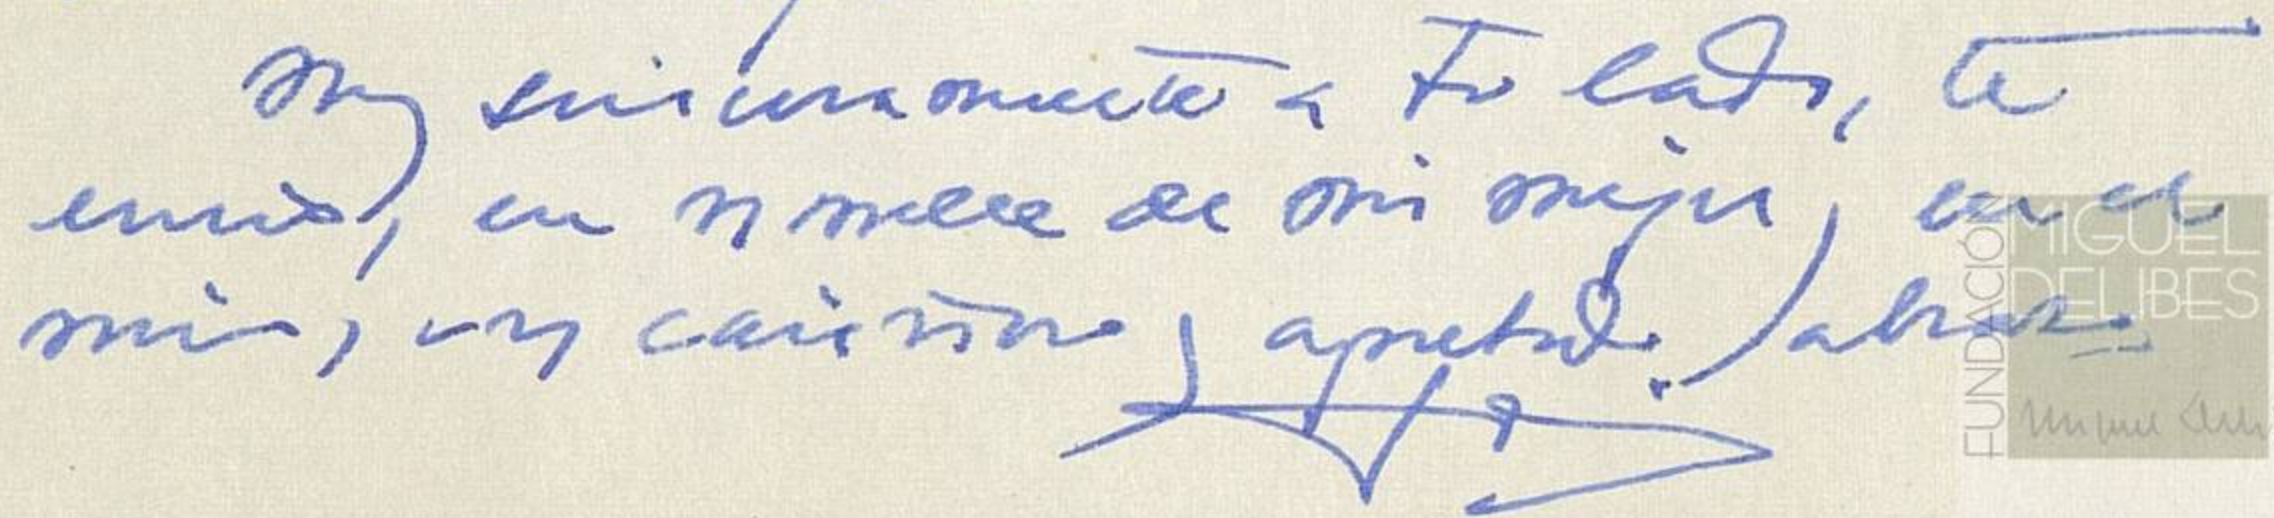 Muy sinceramente a tu lado, te
envío, en nombre de mi mujer y en el
mío, un cariñoso y apretado abrazo
FUNDACIÓN
MIGUEL
DELIBES